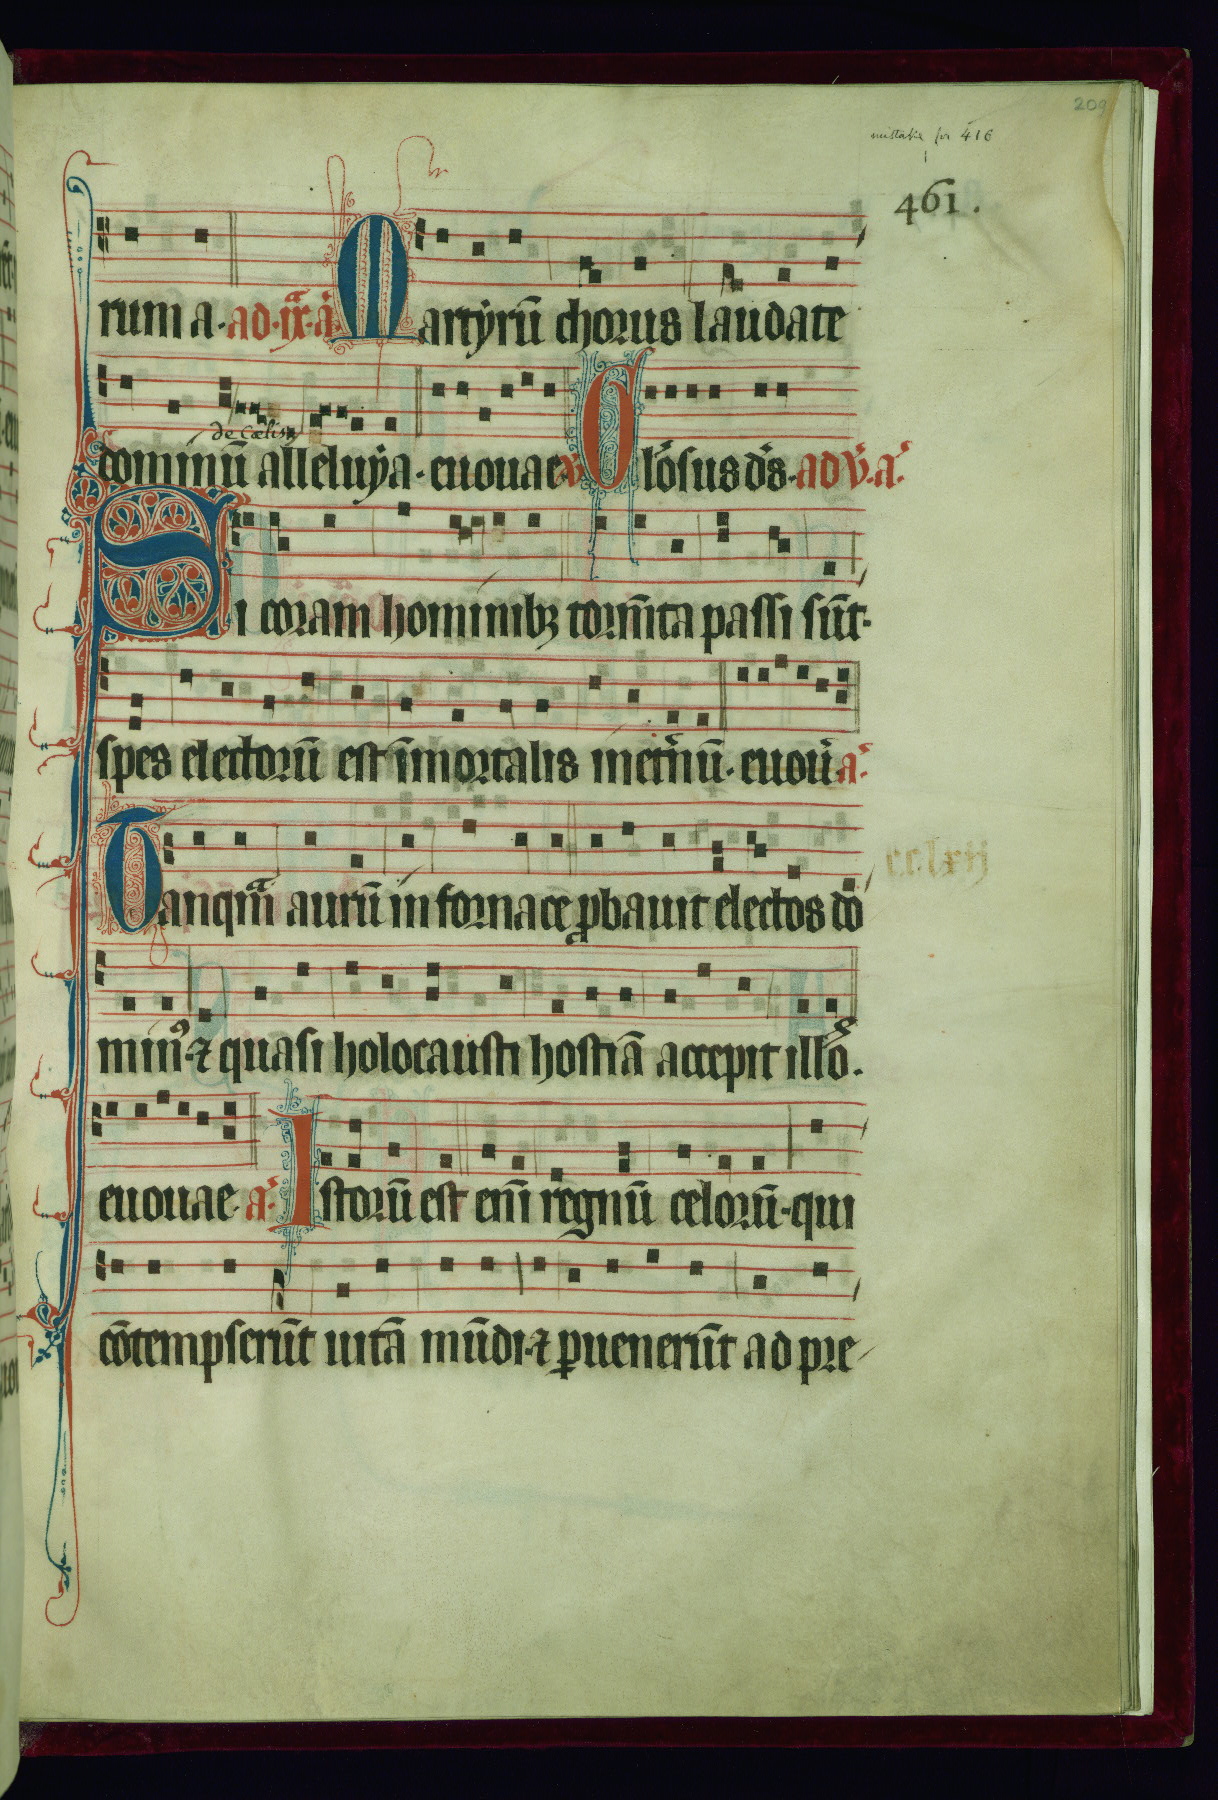 209
mistake for 416
461.
rum a· ad·ix·a̾ Martẏrū chorus laudate
de Cœlis
dominū alleluẏa· euouae ℣ Gl̾osus ds̄· ad v̾·a̾·
Si coram hominibꝫ torm̄ta passi sūt·
spes electorū est īmortalis inet̾nū· euou̾ a̾·
Tanqͣm aurū in fornace ꝓbauit electos do
minꝰ·⁊ quasi holocausti hostiā accepit ill̾o·
euouae· a̾· Istorū est eni̅ regnū celorū· qui
cōtempserūt uitā mūdi·⁊ ꝑuenerūt ad pre
cclxij